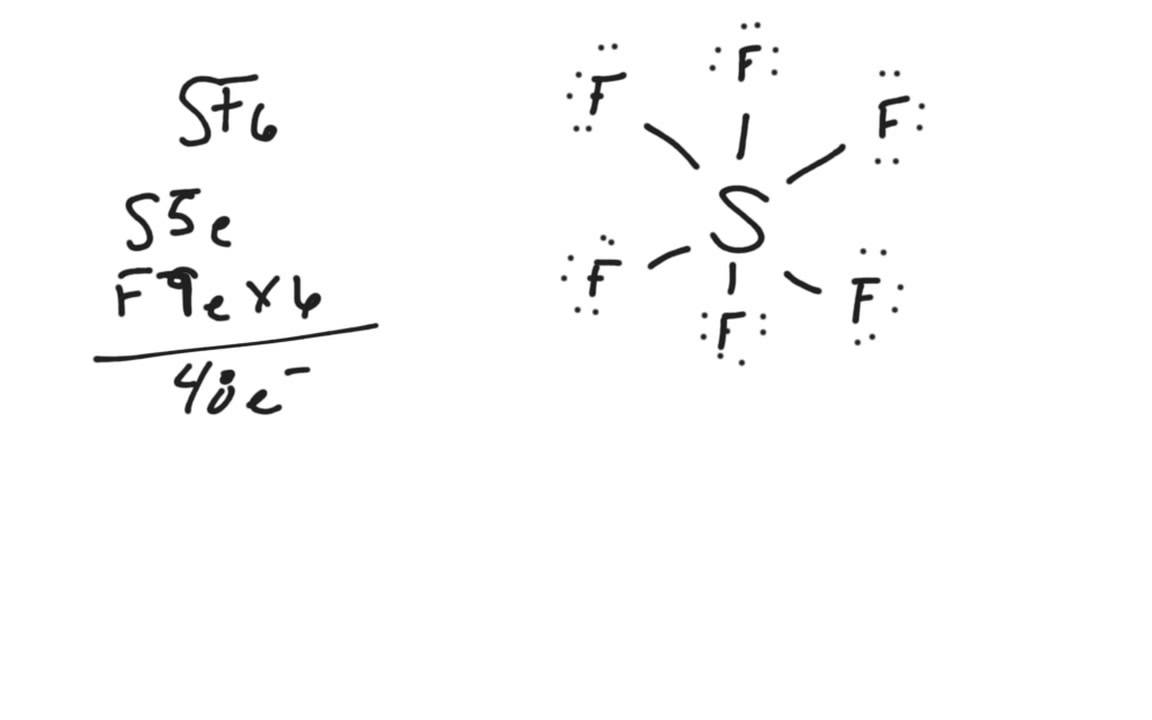 SF6
S 5 e
F 9 e x 6
48 e⁻
F F F
S
F F F